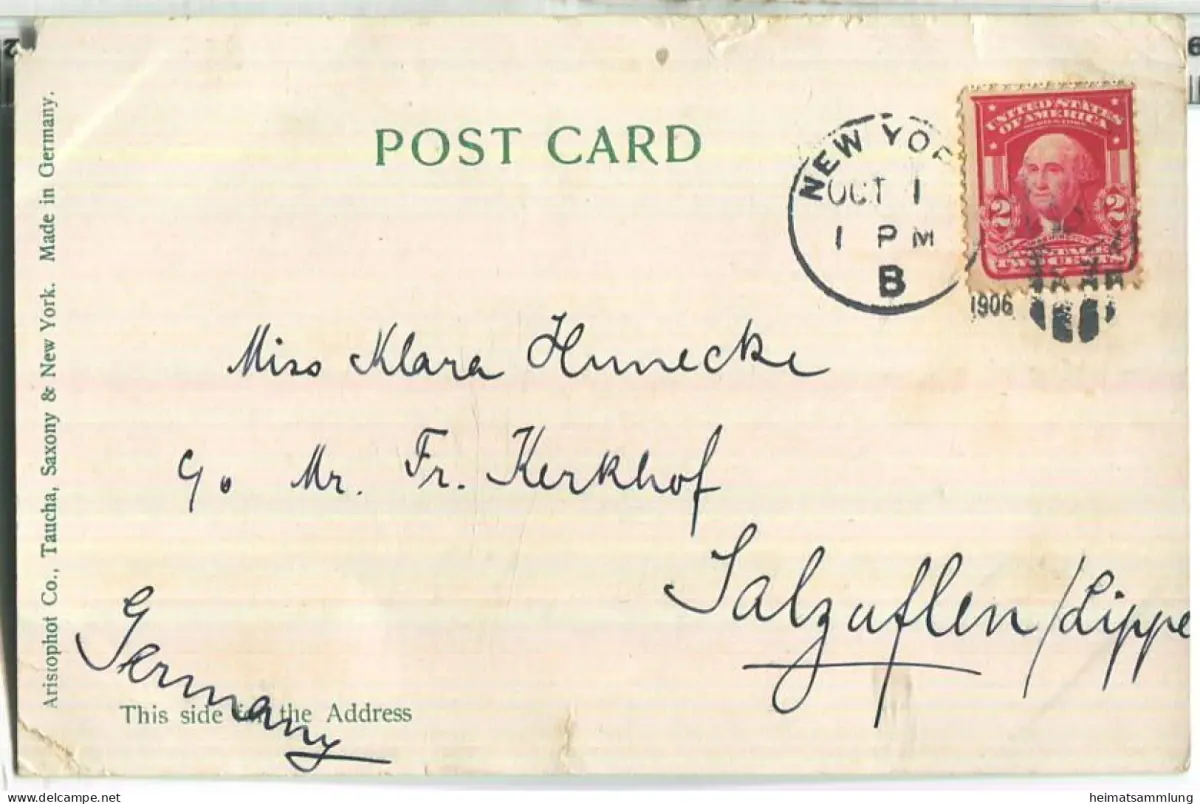 POST CARD
NEW YOR
OCT 1
1 PM
B
1906
UNITED STATES
OF AMERICA
2 2
Miss Klara Hunecke
c/o Mr. Fr. Kerkhof
Salzuflen/Lippe
Germany
This side for the Address
Aristophot Co., Taucha, Saxony & New York. Made in Germany.
delcampe.net
heimatsammlung